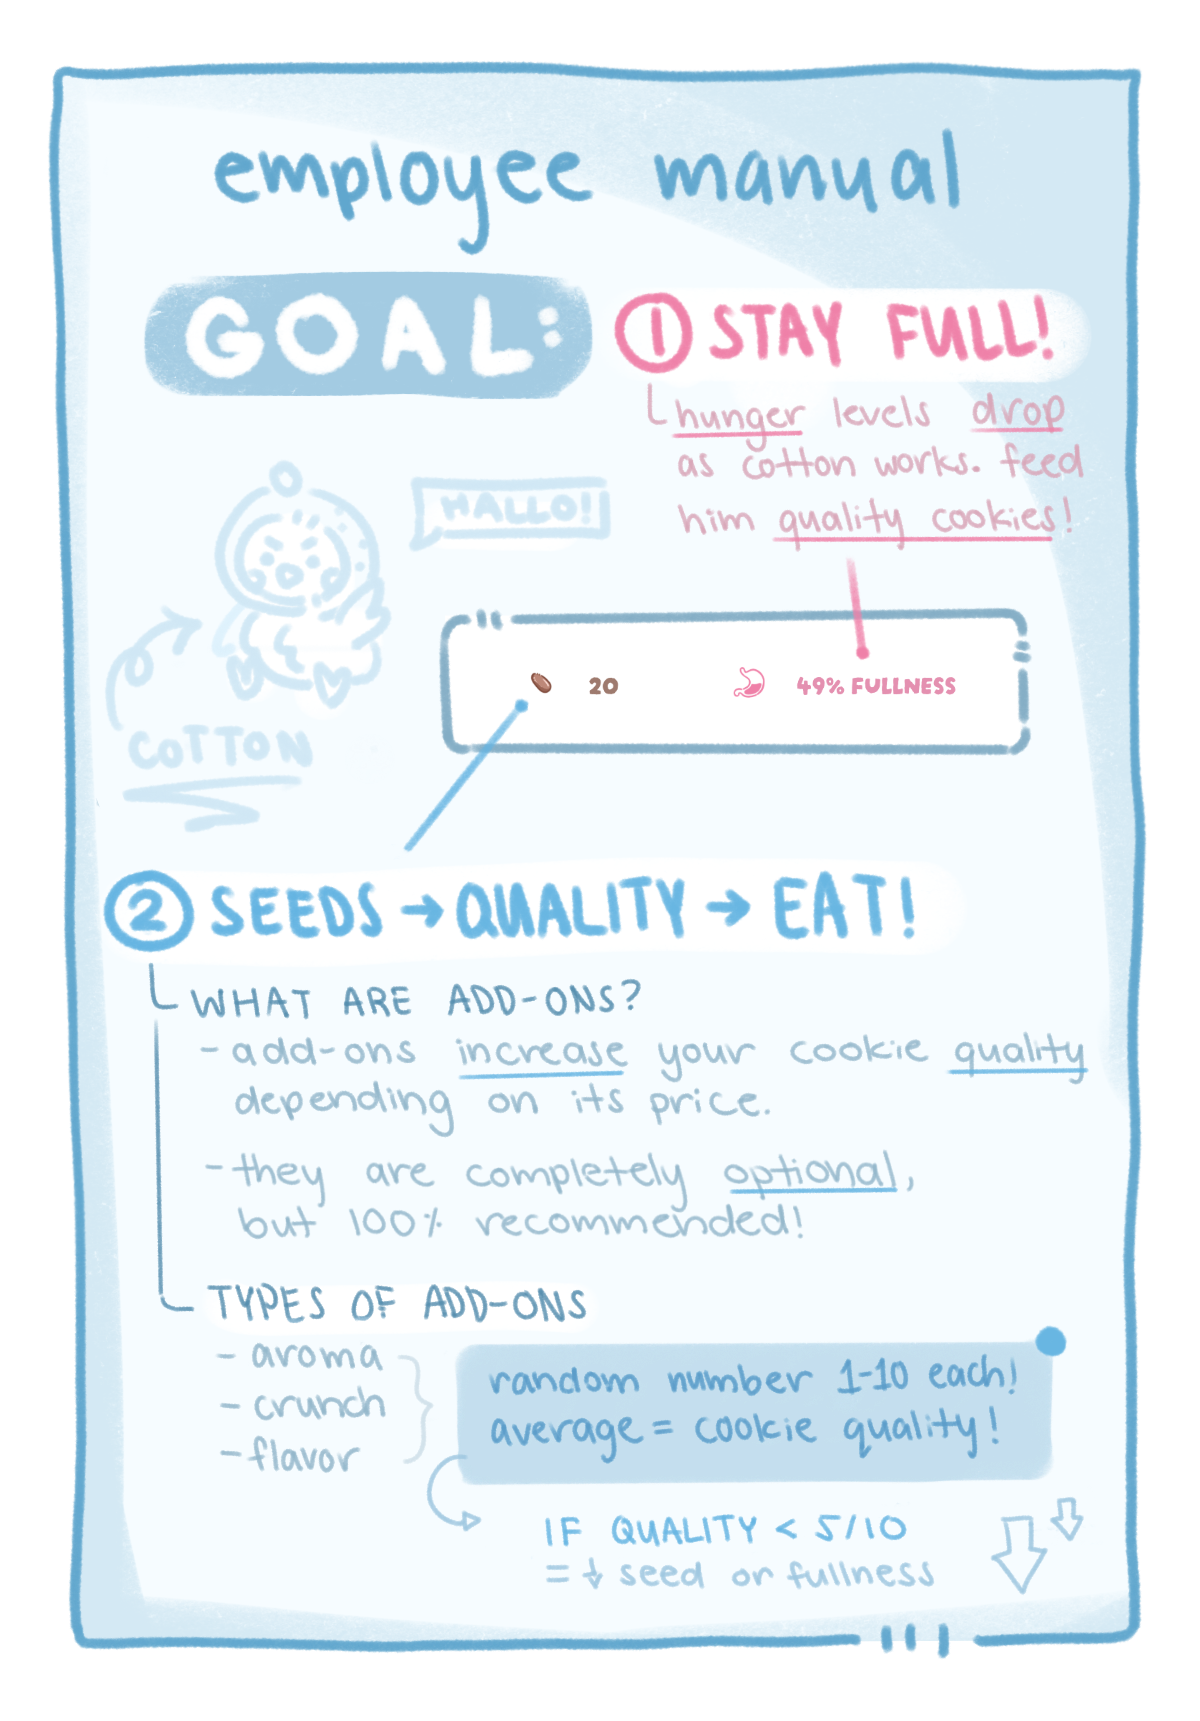 employee manual
GOAL:
① STAY FULL!
hunger levels drop
as cotton works. feed
him quality cookies!
HALLO!
COTTON
20
49% FULLNESS
② SEEDS → QUALITY → EAT!
WHAT ARE ADD-ONS?
- add-ons increase your cookie quality
depending on its price.
- they are completely optional,
but 100% recommended!
TYPES OF ADD-ONS
- aroma
- crunch
- flavor
random number 1-10 each!
average = cookie quality!
IF QUALITY < 5/10
= ↓ seed or fullness